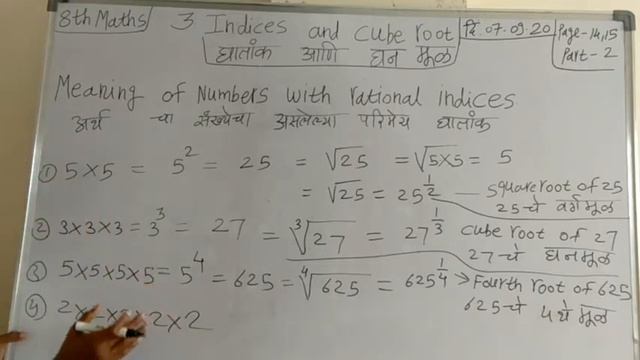 8th Maths
3 Indices and cube root
घातांक आणि घन मूळ
दि. 07.09.20
Page-14,15
Part-2
Meaning of Numbers with rational indices
अर्थ चा संख्येचा असलेल्या परिमेय घातांक
① 5×5 = 5² = 25 = √25 = √5×5 = 5
= √25 = 25^1/2 — square root of 25
25 चे वर्ग मूळ
② 3×3×3 = 3³ = 27 = ∛27 = 27^1/3 cube root of 27
27 चे घन मूळ
③ 5×5×5×5 = 5⁴ = 625 = ∜625 = 625^1/4 → Fourth root of 625
625 चे 4 थे मूळ
④ 2× ×2×2